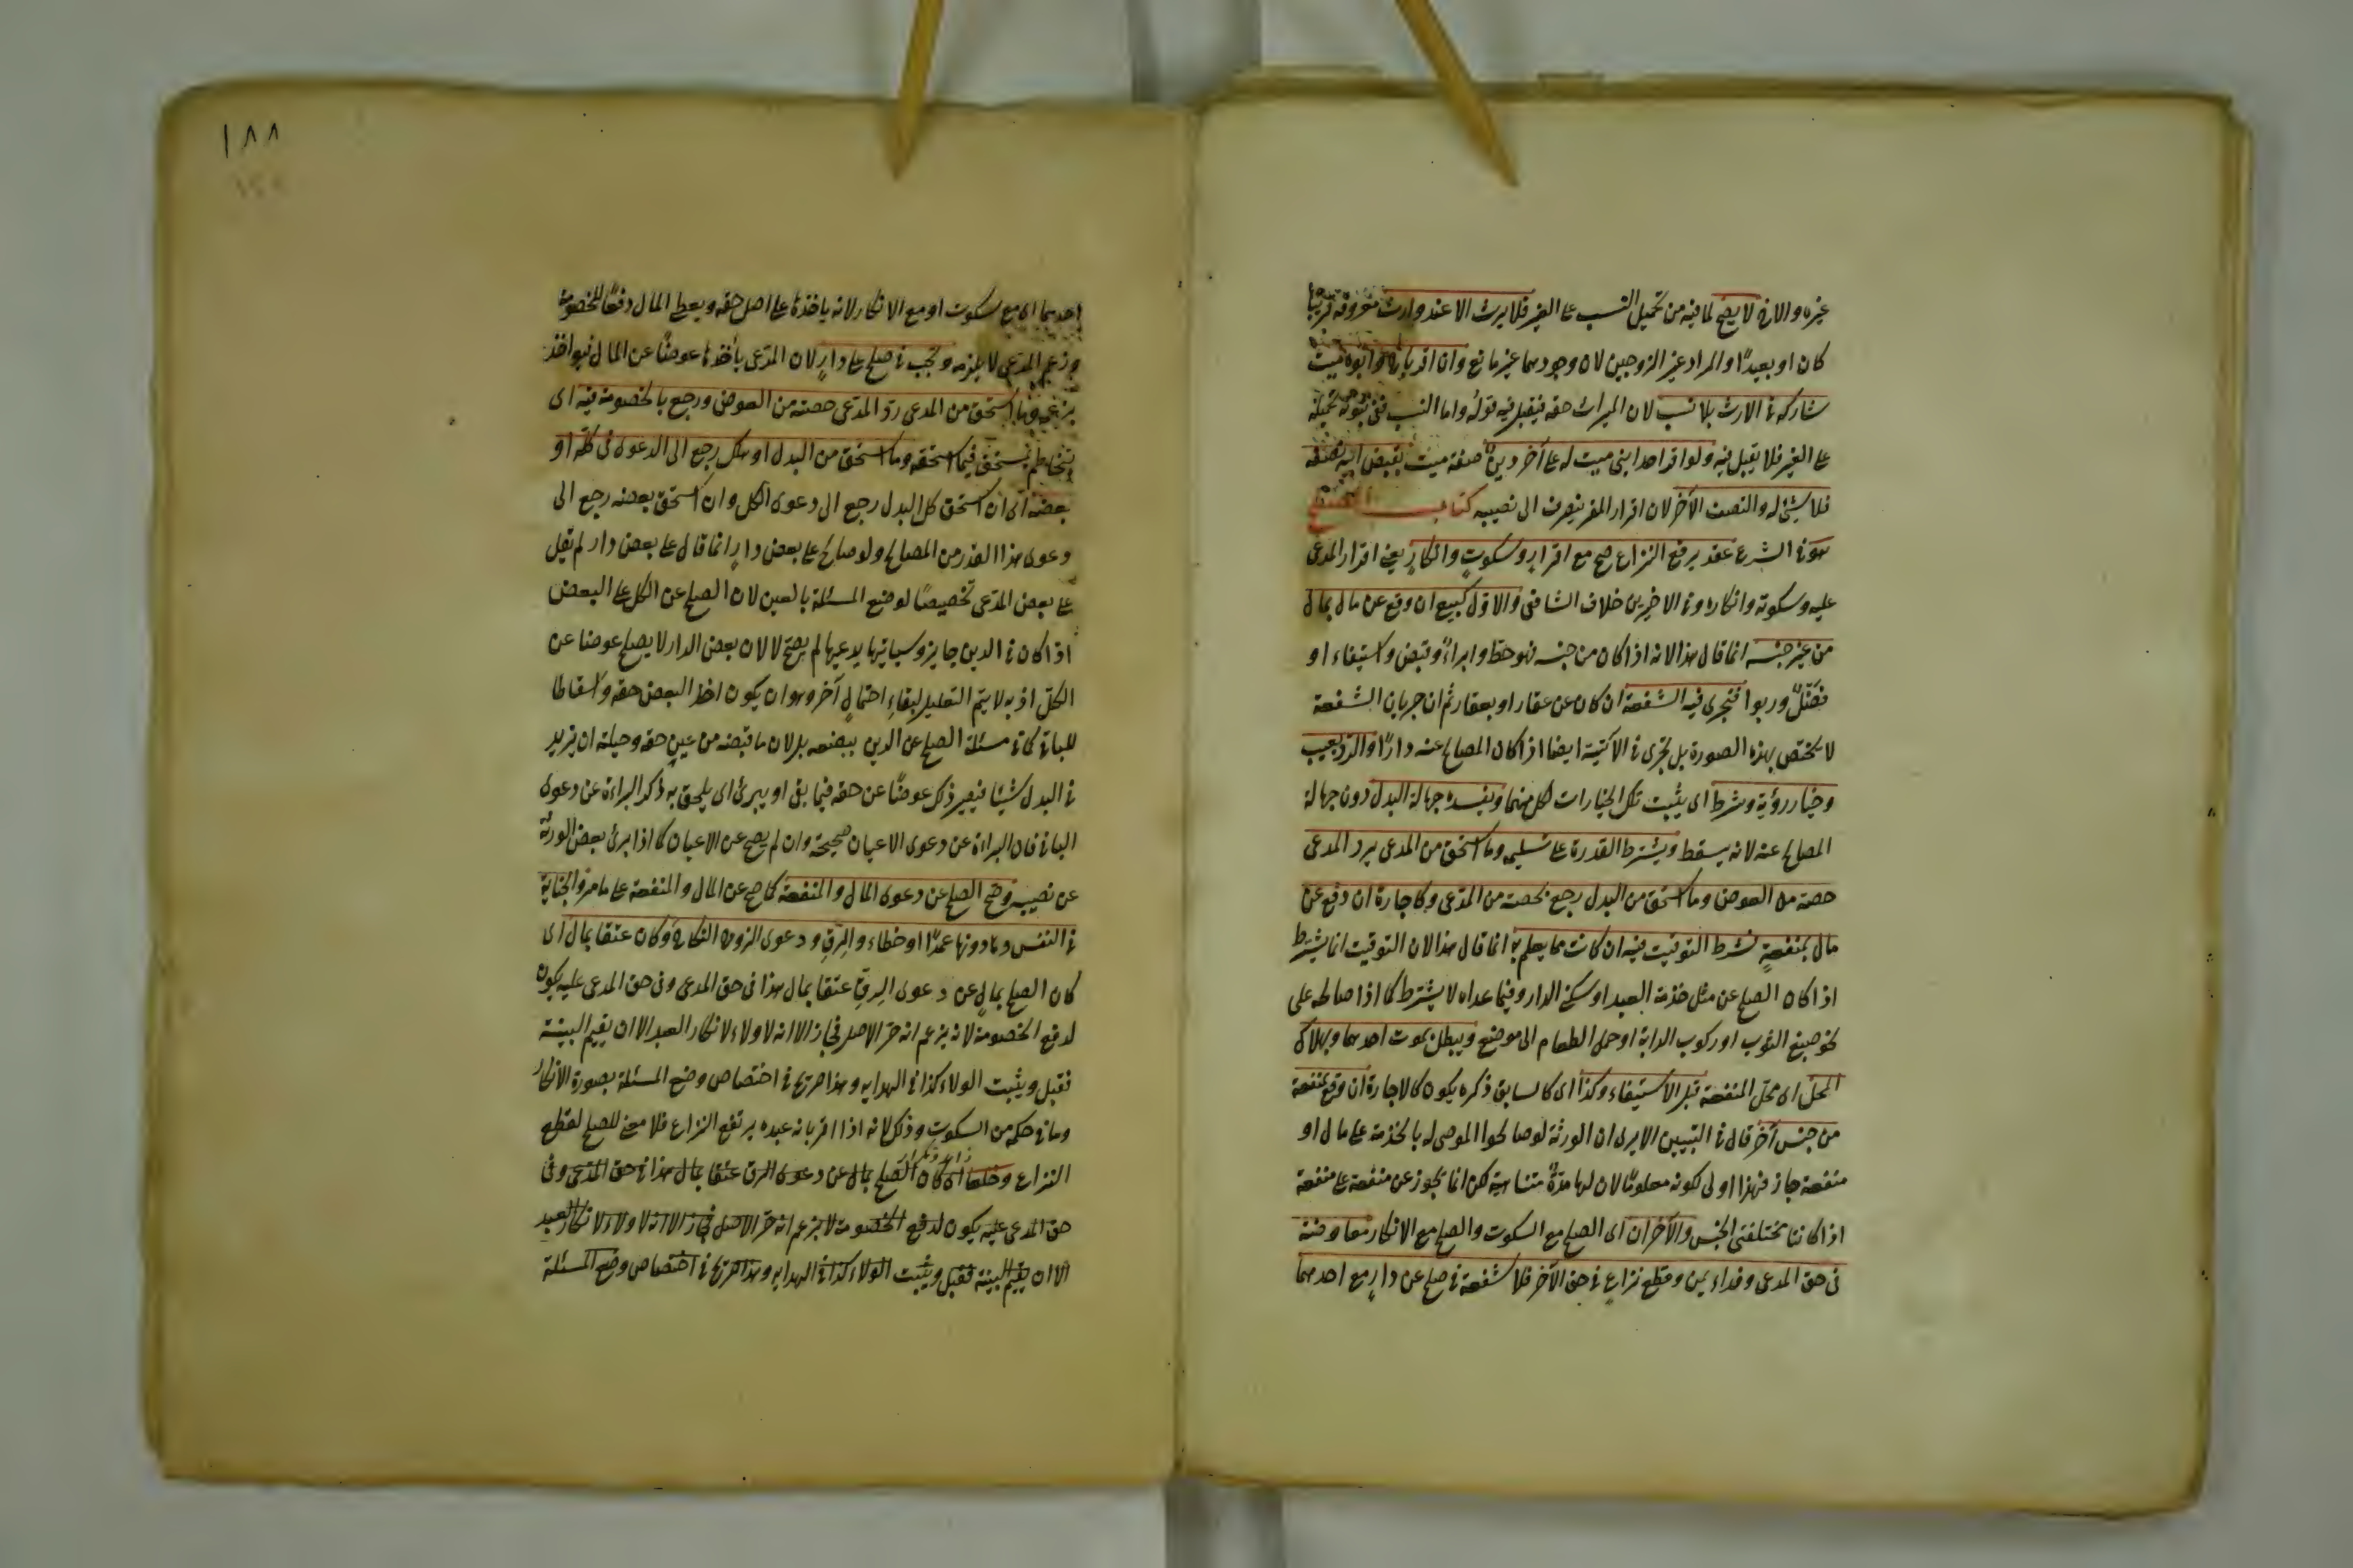 غيره والارث لا يصح لما فيه من تحميل النسب على الغير فلا يرث الا عند وارث معروف قريبا
كان او بعيدًا والمراد غير الزوجين لان وجودهما غير مانع وان اقر باخ وابوه ميت
شاركه في الارث بلا نسب لان الميراث حقه فيقبل فيه قوله واما النسب ففي ثبوته تحميله
على الغير فلا يقبل فيه ولو اقر احد ابنى ميت له على آخر دين صفة ميت بقبض ابيه نصفه
فلا شئ له والنصف الآخر لان اقرار المقر ينصرف الى نصيبه كتاب الصلح
هو في الشرع عقد يرفع النزاع صح مع اقرار وسكوت وانكار يعنى اقرار المدعى
عليه وسكوته وانكاره وفي الاخيرين خلاف الشافعى والاول كبيع ان وقع عن مال بمال
من غير جنسه انما قال هذا لانه اذا كان من جنسه فهو حط وابراء وقبض واستيفاء او
فضل وربوا فتجرى فيه الشفعة ان كان عن عقار او بعقار ثم ان جريان الشفعة
لا يختص بهذه الصورة بل تجرى في الآتية ايضا اذا كان المصالح عنه دارا والرد بعيب
وخيار رؤية وشرط اى يثبت تلك الخيارات لكل منهما ويفسده جهالة البدل دون جهالة
المصالح عنه لانه يسقط ويشترط القدرة على تسليمه وما استحق من المدعى يرد المدعى
حصته من العوض وما استحق من البدل رجع بحصته من المدعى وكاجارة ان وقع عن
مال بمنفعةٍ فشرط التوقيت فيه ان كانت مما يعلم به انما قال هذا لان التوقيت انما يشترط
اذا كان الصلح عن مثل خدمة العبد او سكنى الدار وفيما عداه لا يشترط كما اذا صالحه على
نحو صبغ الثوب او ركوب الدابة او حمل الطعام الى موضع ويبطل بموت احدهما وبهلاك
المحل اى محل المنفعة قبل الاستيفاء وكذا اى كالسابق ذكره يكون كالاجارة ان وقع بمنفعة
من جنس آخر قال في التبيين الا يرى ان الورثة لو صالحوا الموصى له بالخدمة على مال او
منفعة جاز فهذا اولى لكونه معلوما لان لها مدةً متناهية لكن انما يجوز عن منفعة على منفعة
اذا كانتا مختلفتى الجنس والآخران اى الصلح مع السكوت والصلح مع الانكار معاوضة
في حق المدعى وفداء يمين وقطع نزاع في حق الآخر فلا شفعة في صلح عن دارٍ مع احدهما
١٨٨
احدهما اى مع سكوت او مع الانكار لانه ياخذها على اصل حقه ويعطى المال دفعًا للخصومة
وزعم المدعى لا يلزمه وتجب في صلح على دارٍ لان المدعى يأخذها عوضًا عن المال فيؤاخذ
بزعمه وما استحق من المدعى رد المدعى حصته من العوض ورجع بالخصومة فيه اى
يخاصم المستحق فيما استحقه وما استحق من البدل او هلك رجع الى الدعوى في كله او
بعضه اى ان استحق كل البدل رجع الى دعوى الكل وان استحق بعضه رجع الى
دعوى هذا القدر من المصالح ولو صالح على بعض دارٍ انما قال على بعض دار لم يقل
على بعض المدعى تخصيصًا لوضع المسئلة بالعين لان الصلح عن الكل على البعض
اذا كان في الدين جايز وسياتيها يدعيها لم يصح لا لان بعض الدار لا يصلح عوضا عن
الكل اذ به لا يتم التعليل لبقاء احتمال آخر وهو ان يكون اخذ البعض حقه واسقاطا
للباقى كما في مسئلة الصلح عن الدين ببعضه بل لان ما قبضه من عين حقه وحيلته ان يزيد
في البدل شيئا فيصير ذلك عوضًا عن حقه فيما بقى او يبرئ اى يلحق به ذكر البراءة عن دعوى
الباقى فان البراءة عن دعوى الاعيان صحيحة وان لم يصح عن الاعيان كما اذا ابرئ بعض الورثة
عن نصيبه وصح الصلح عن دعوى المال والمنفعة كما صح عن المال والمنفعة على ما مر والجناية
في النفس وما دونها عمدًا او خطاء والرق ودعوى الزوج النكاح وكان عتقا بمال اى
كان الصلح بمالٍ عن دعوى الرق عتقا بمال هذا في حق المدعى وفي حق المدعى عليه يكون
لدفع الخصومة لانه يزعم انه حر الاصل فجاز الا انه لا ولاء لانكار العبد الا ان يقيم البينة
فقبل ويثبت الولاء كذا في الهدايه وهذا صريح في اختصاص وضع المسئلة بصورة الانكار
وما في حكمه من السكوت وذلك لانه اذا اقر بانه عبده يرتفع النزاع فلا معنى للصلح لقطع
النزاع وخلعا اى كان الصلح بمال عن دعوى الرق عتقا بمال هذا في حق المدعى وفي
حق المدعى عليه يكون لدفع الخصومة لا بزعم انه حر الاصل فجاز الا انه لا ولاء لانكار العبد
الا ان يقيم البينة فقبل ويثبت الولاء كذا في الهدايه وهذا صريح في اختصاص وضع المسئلة